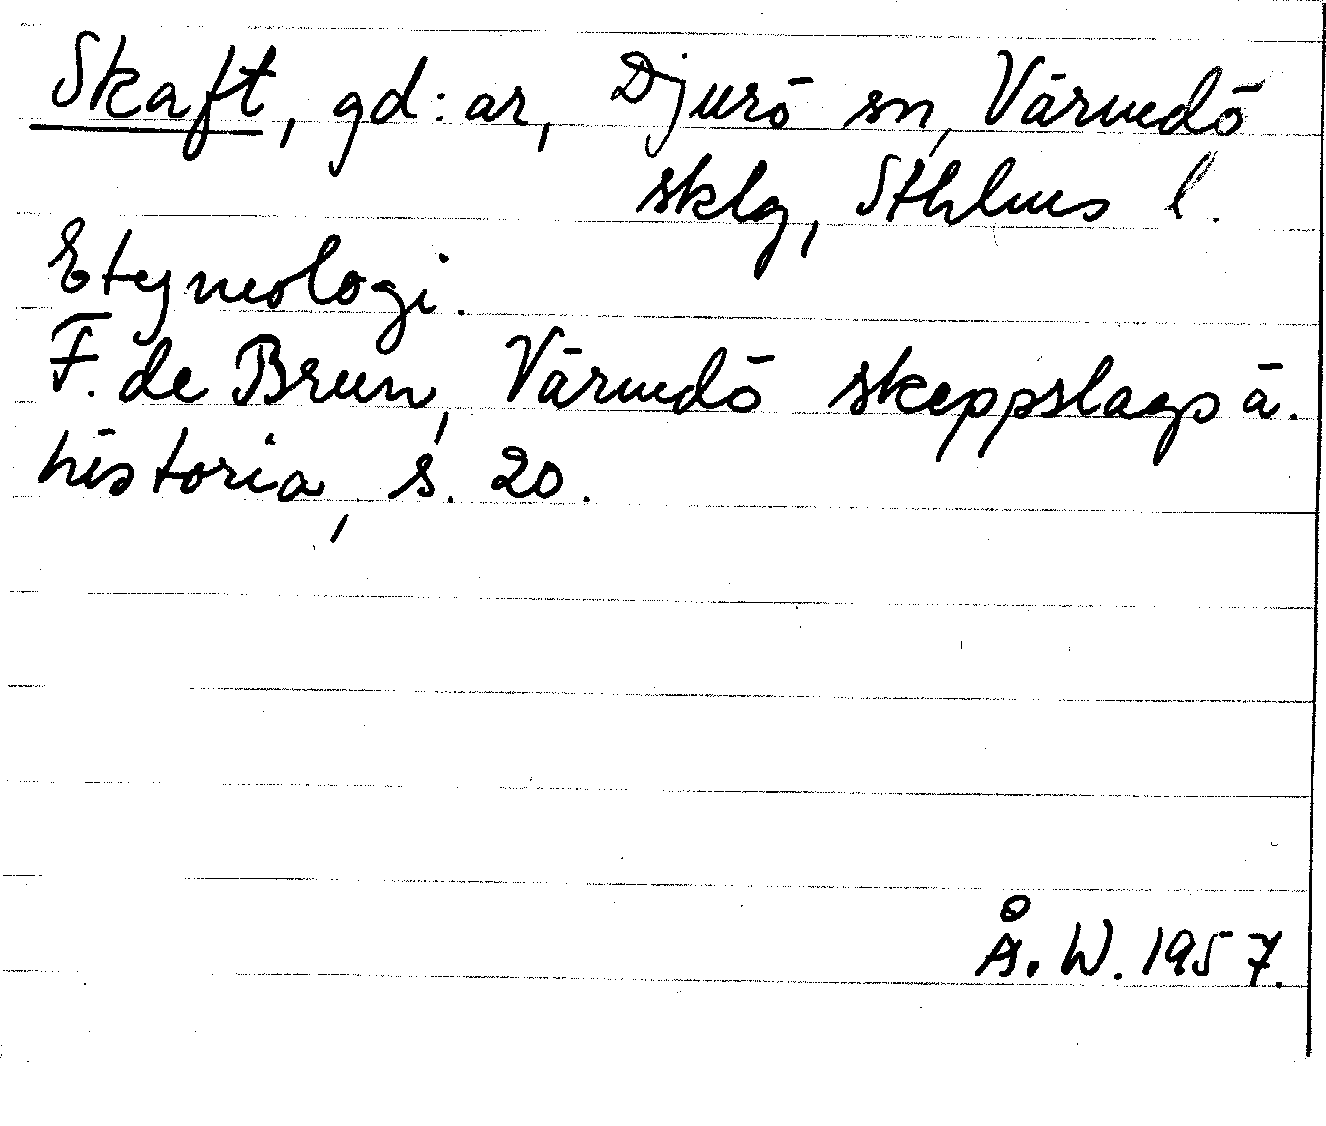 Skaft, gd:ar, Djurö sn, Värmdö
sklg, Sthlms l.
Etymologi.
F. de Brun, Värmdö skeppslags ä.
historia, s. 20.
Å. W. 1957.